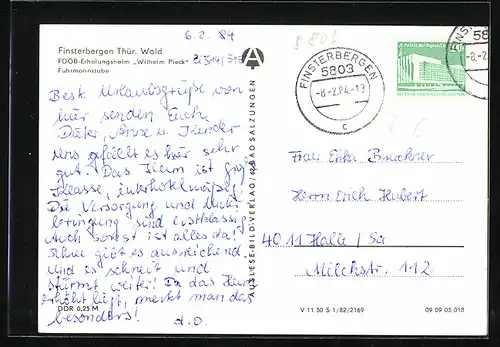 6.2.84
Finsterbergen Thür. Wald
FDGB-Erholungsheim „Wilhelm Pieck"
Fuhrmannstube
Beste Urlaubsgrüße von
hier senden Euch
Dieter, und Kinder
uns gefällt es hier sehr
gut. Das Heim ist groß
Klasse, interhotelmäßig!
Die Versorgung und Unter-
bringung sind erstklassig
Auch sonst ist alles da!
gibt es ausreichend
und es schneit und
stürmt weiter! Da das Heim
erhöht liegt, merkt man das
besonders!
d.O.
DDR 0,25 M
AUSLESE-BILD-VERLAG BAD SALZUNGEN
5802
FINSTERBERGEN
5803
-8.-2.84.-13
c
Palast der Republik
Frau Erika Bruckner
Herrn Erich Hubert
4011 Halle / Sa
Milchstr. 112
V 11 50 S 1/82/2169
09 09 05 018